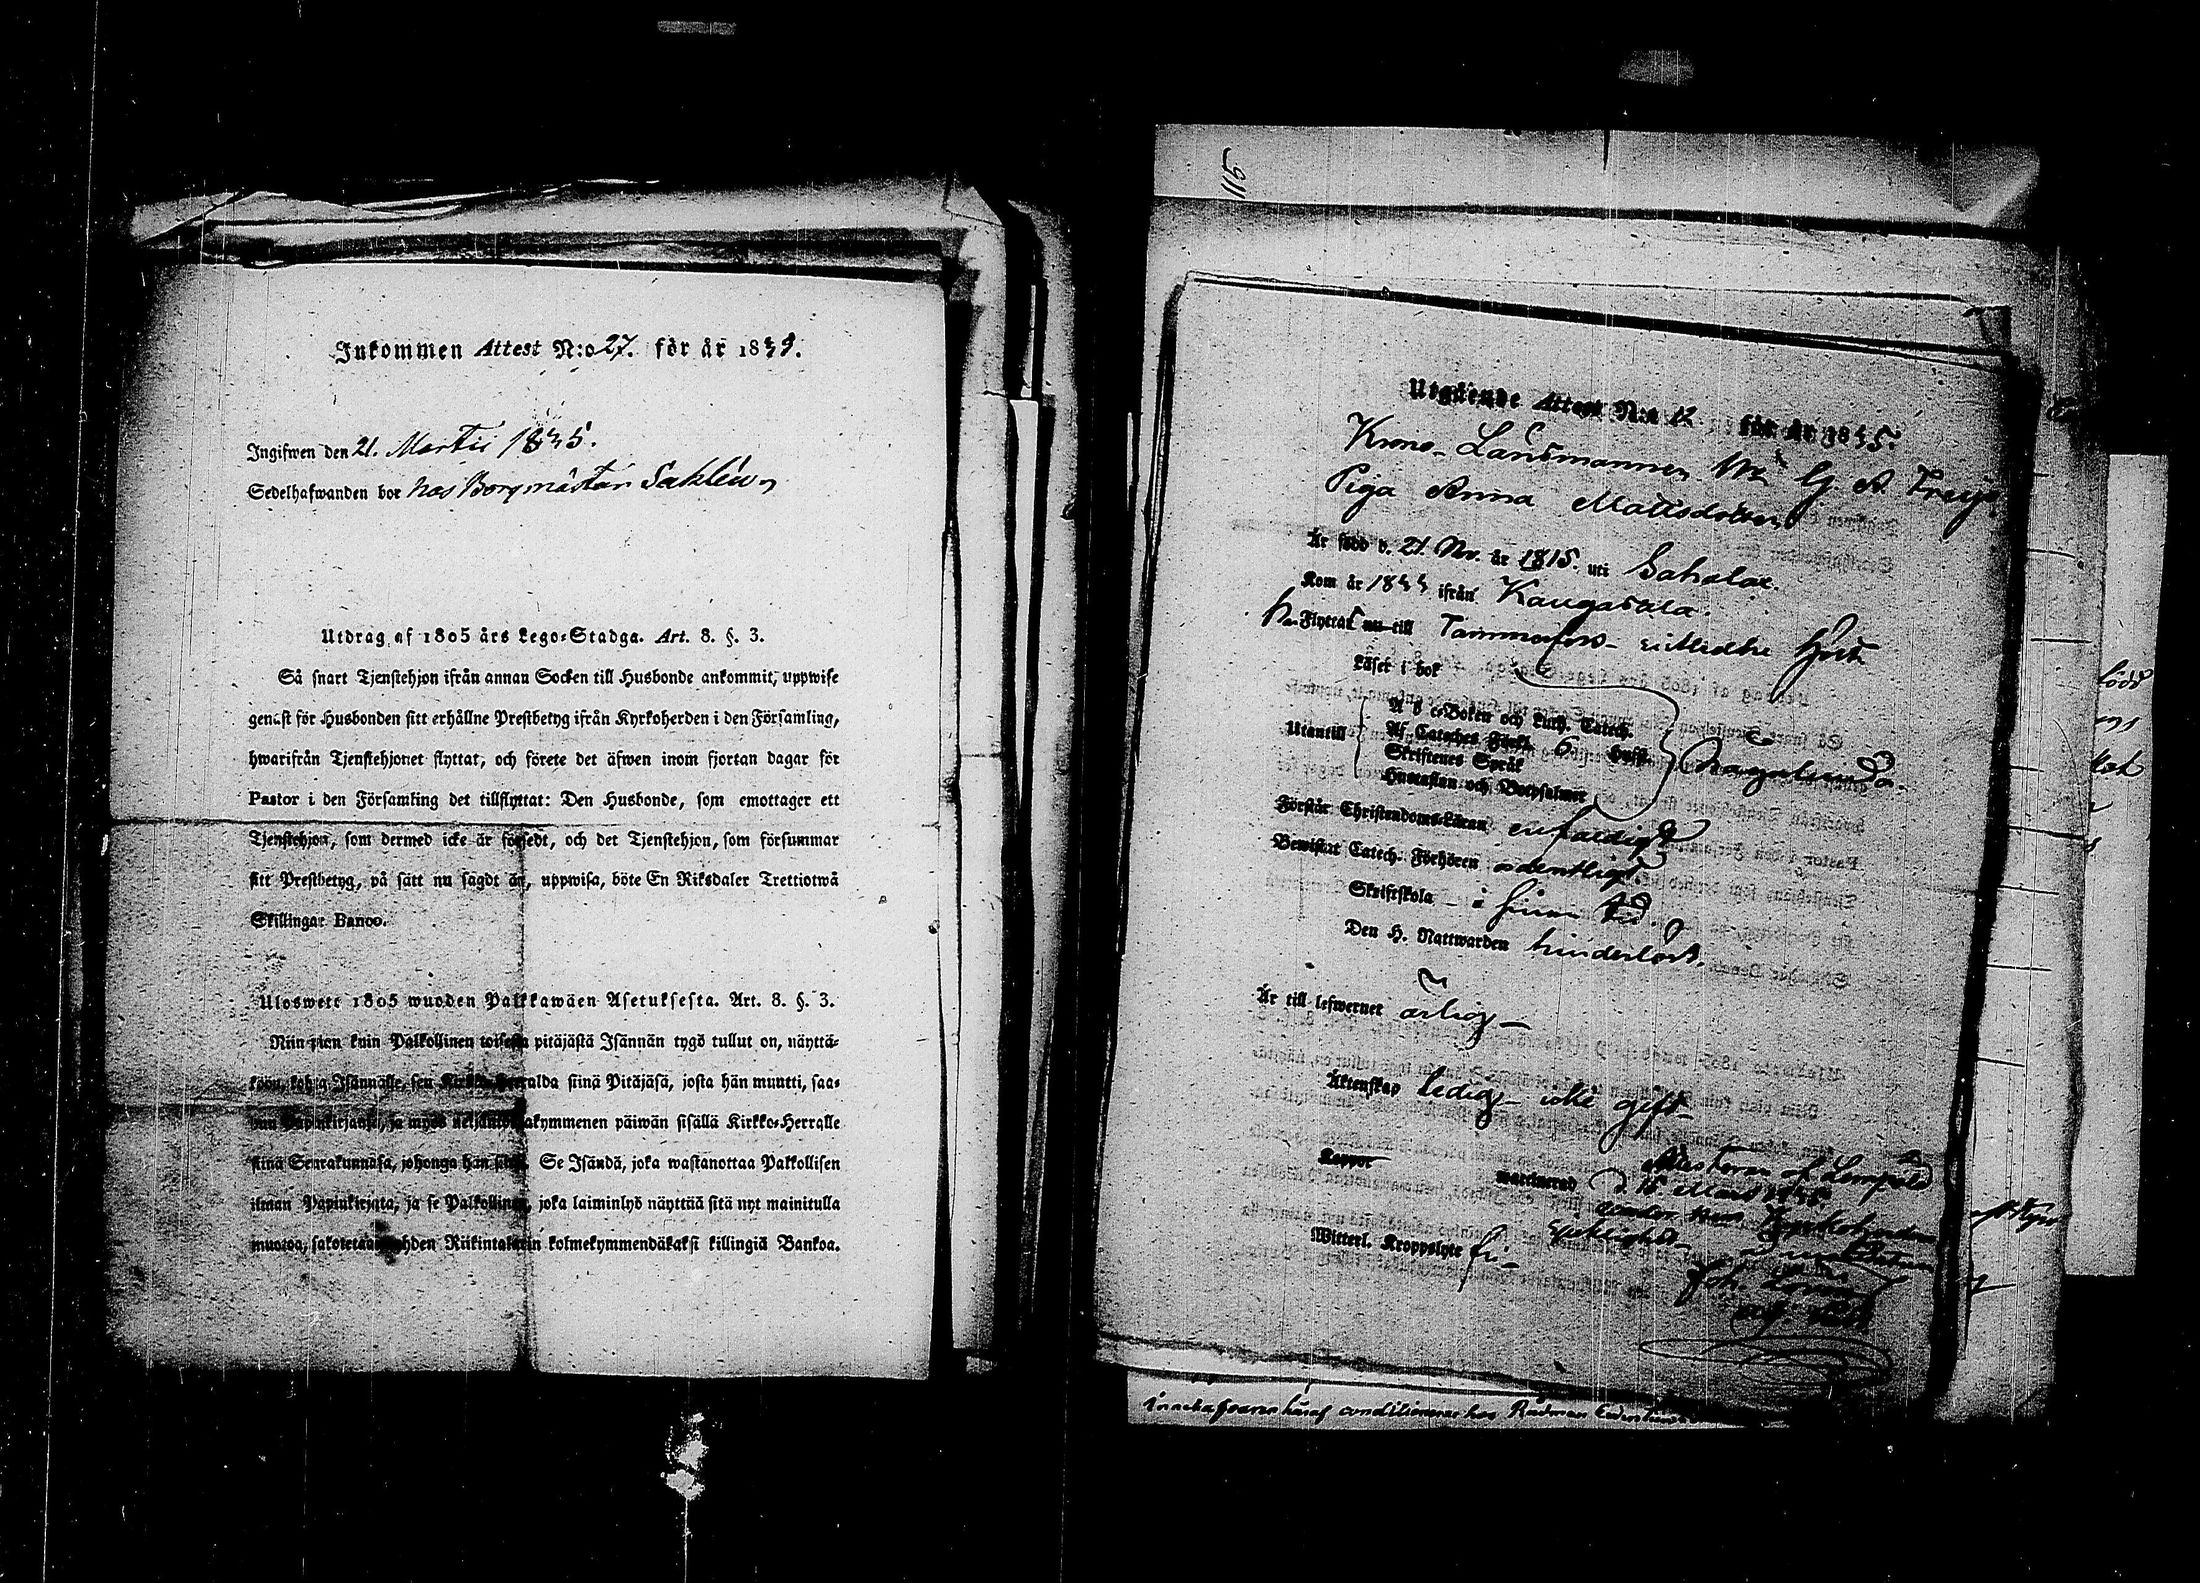 Inkommen Attest N:o 27. för år 1845.
Ingifwen den 21. Martii 1845.
Sedelhafwanden bor hos Borgmästar
Utdrag af 1805 års Lego-Stadga. Art. 8. §. 3.
Så snart Tjenstehjon ifrån annan Socken till Husbonde ankommit, uppwise
genast för Husbonden sitt erhållne Prestbetyg ifrån Kyrkoherden i den Församling,
hwarifrån Tjenstehjonet flyttat, och förete det äfwen inom fjortan dagar för
Pastor i den Församling det tillflyttat: Den Husbonde, som emottager ett
Tjenstehjon, som dermed icke är försedt, och det Tjenstehjon, som försummar
sitt Prestbetyg, på sätt nu sagdt är, uppwisa, böte En Riksdaler Trettiotwå
Skillingar Banco.
Uloswett 1805 wuoden Palkkawäen Asetuksesta. Art. 8. §. 3.
Niin pian kuin Palkollinen toisesta pitäjästä Isännän tygö tullut on, näyttä-
köön, kohta Isännälle, sen Kirkko-Herralda siinä Pitäjäsä, josta hän muutti, saa-
dun Papinkirjansa, ja myös neljäntoistakymmenen päiwän sisällä Kirkko-Herralle
siinä Seurakunnasa, johonga hän siirsi. Se Isändä, joka wastanottaa Palkollisen
ilman Papinkirjata, ja se Palkollinen, joka laiminlyö näyttää sitä nyt mainitulla
muotoa, sakotetaan yhden Riikintalarin kolmekymmendäkaksi killingiä Bankoa.
115
Utgående Attest N:o 12 för år 1845.
Krono-Länsmannen G. A.
Piga Anna Mattsdotter
Är född d. 21. Nov. år 1815. uti Sahalax.
Kom år 1844 ifrån Kangasala.
Flyttat nu till Tammerfors
Läser i bok
Utantill
A b c-Boken och Luth. Catech.
Af Cateches Förkl. 6 hufst.
Skriftenes Språk
Hustaflan och Botpsalmer
Förstår Christendoms-Läran enfaldigt
Bewistat Catech. Förhören ordentligt.
Skriftskola i sinom tid.
Den H. Nattwarden hinderlöst.
Är till lefwernet ärlig
Äktenskap ledig icke gift
Koppor
waccinerad
Witterl. Kroppslyte fri
d. 15. Mars 1845
Joh.
hos Rådman